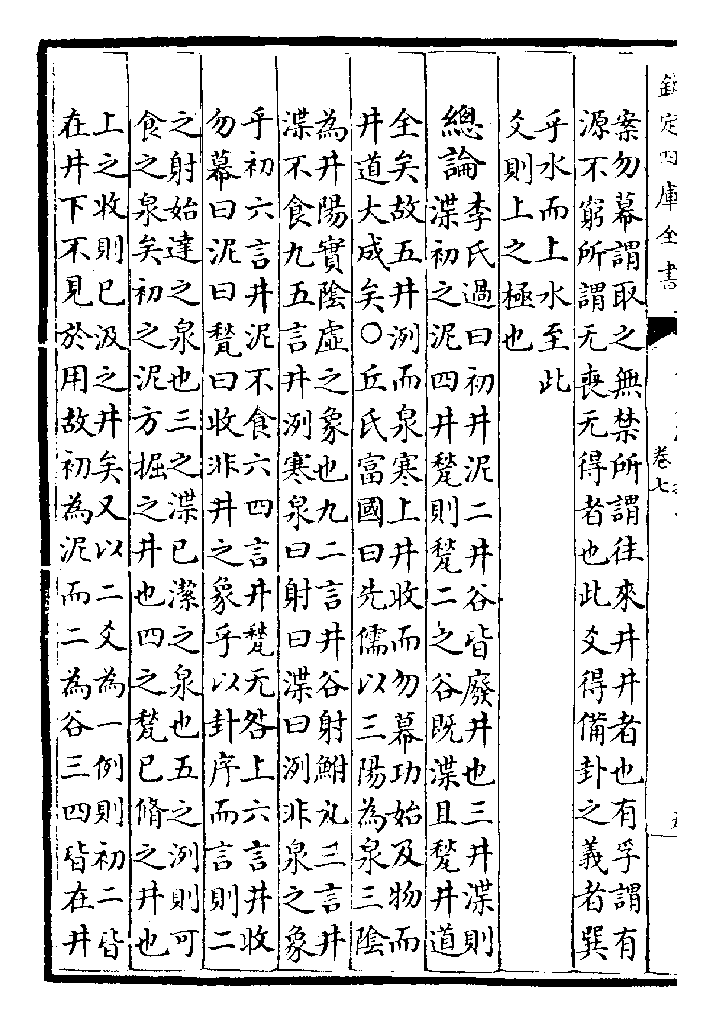 欽定四庫全書
卷七
案勿幕謂取之無禁所謂往來井井者也有孚謂有
源不窮所謂无喪无得者也此爻得備卦之義者巽
乎水而上水至此
爻則上之極也
總論
李氏過曰初井泥二井谷皆廢井也三井渫則
渫初之泥四井甃則甃二之谷既渫且甃井道
全矣故五井洌而泉寒上井收而勿幕功始及物而
井道大成矣○丘氏富國曰先儒以三陽為泉三陰
為井陽實陰虛之象也九二言井谷射鮒九三言井
渫不食九五言井洌寒泉曰射曰渫曰洌非泉之象
乎初六言井泥不食六四言井甃无咎上六言井收
勿幕曰泥曰甃曰收非井之象乎以卦序而言則二
之射始達之泉也三之渫已潔之泉也五之洌則可
食之泉矣初之泥方掘之井也四之甃已脩之井也
上之收則已汲之井矣又以二爻為一例則初二皆
在井下不見於用故初為泥而二為谷三四皆在井